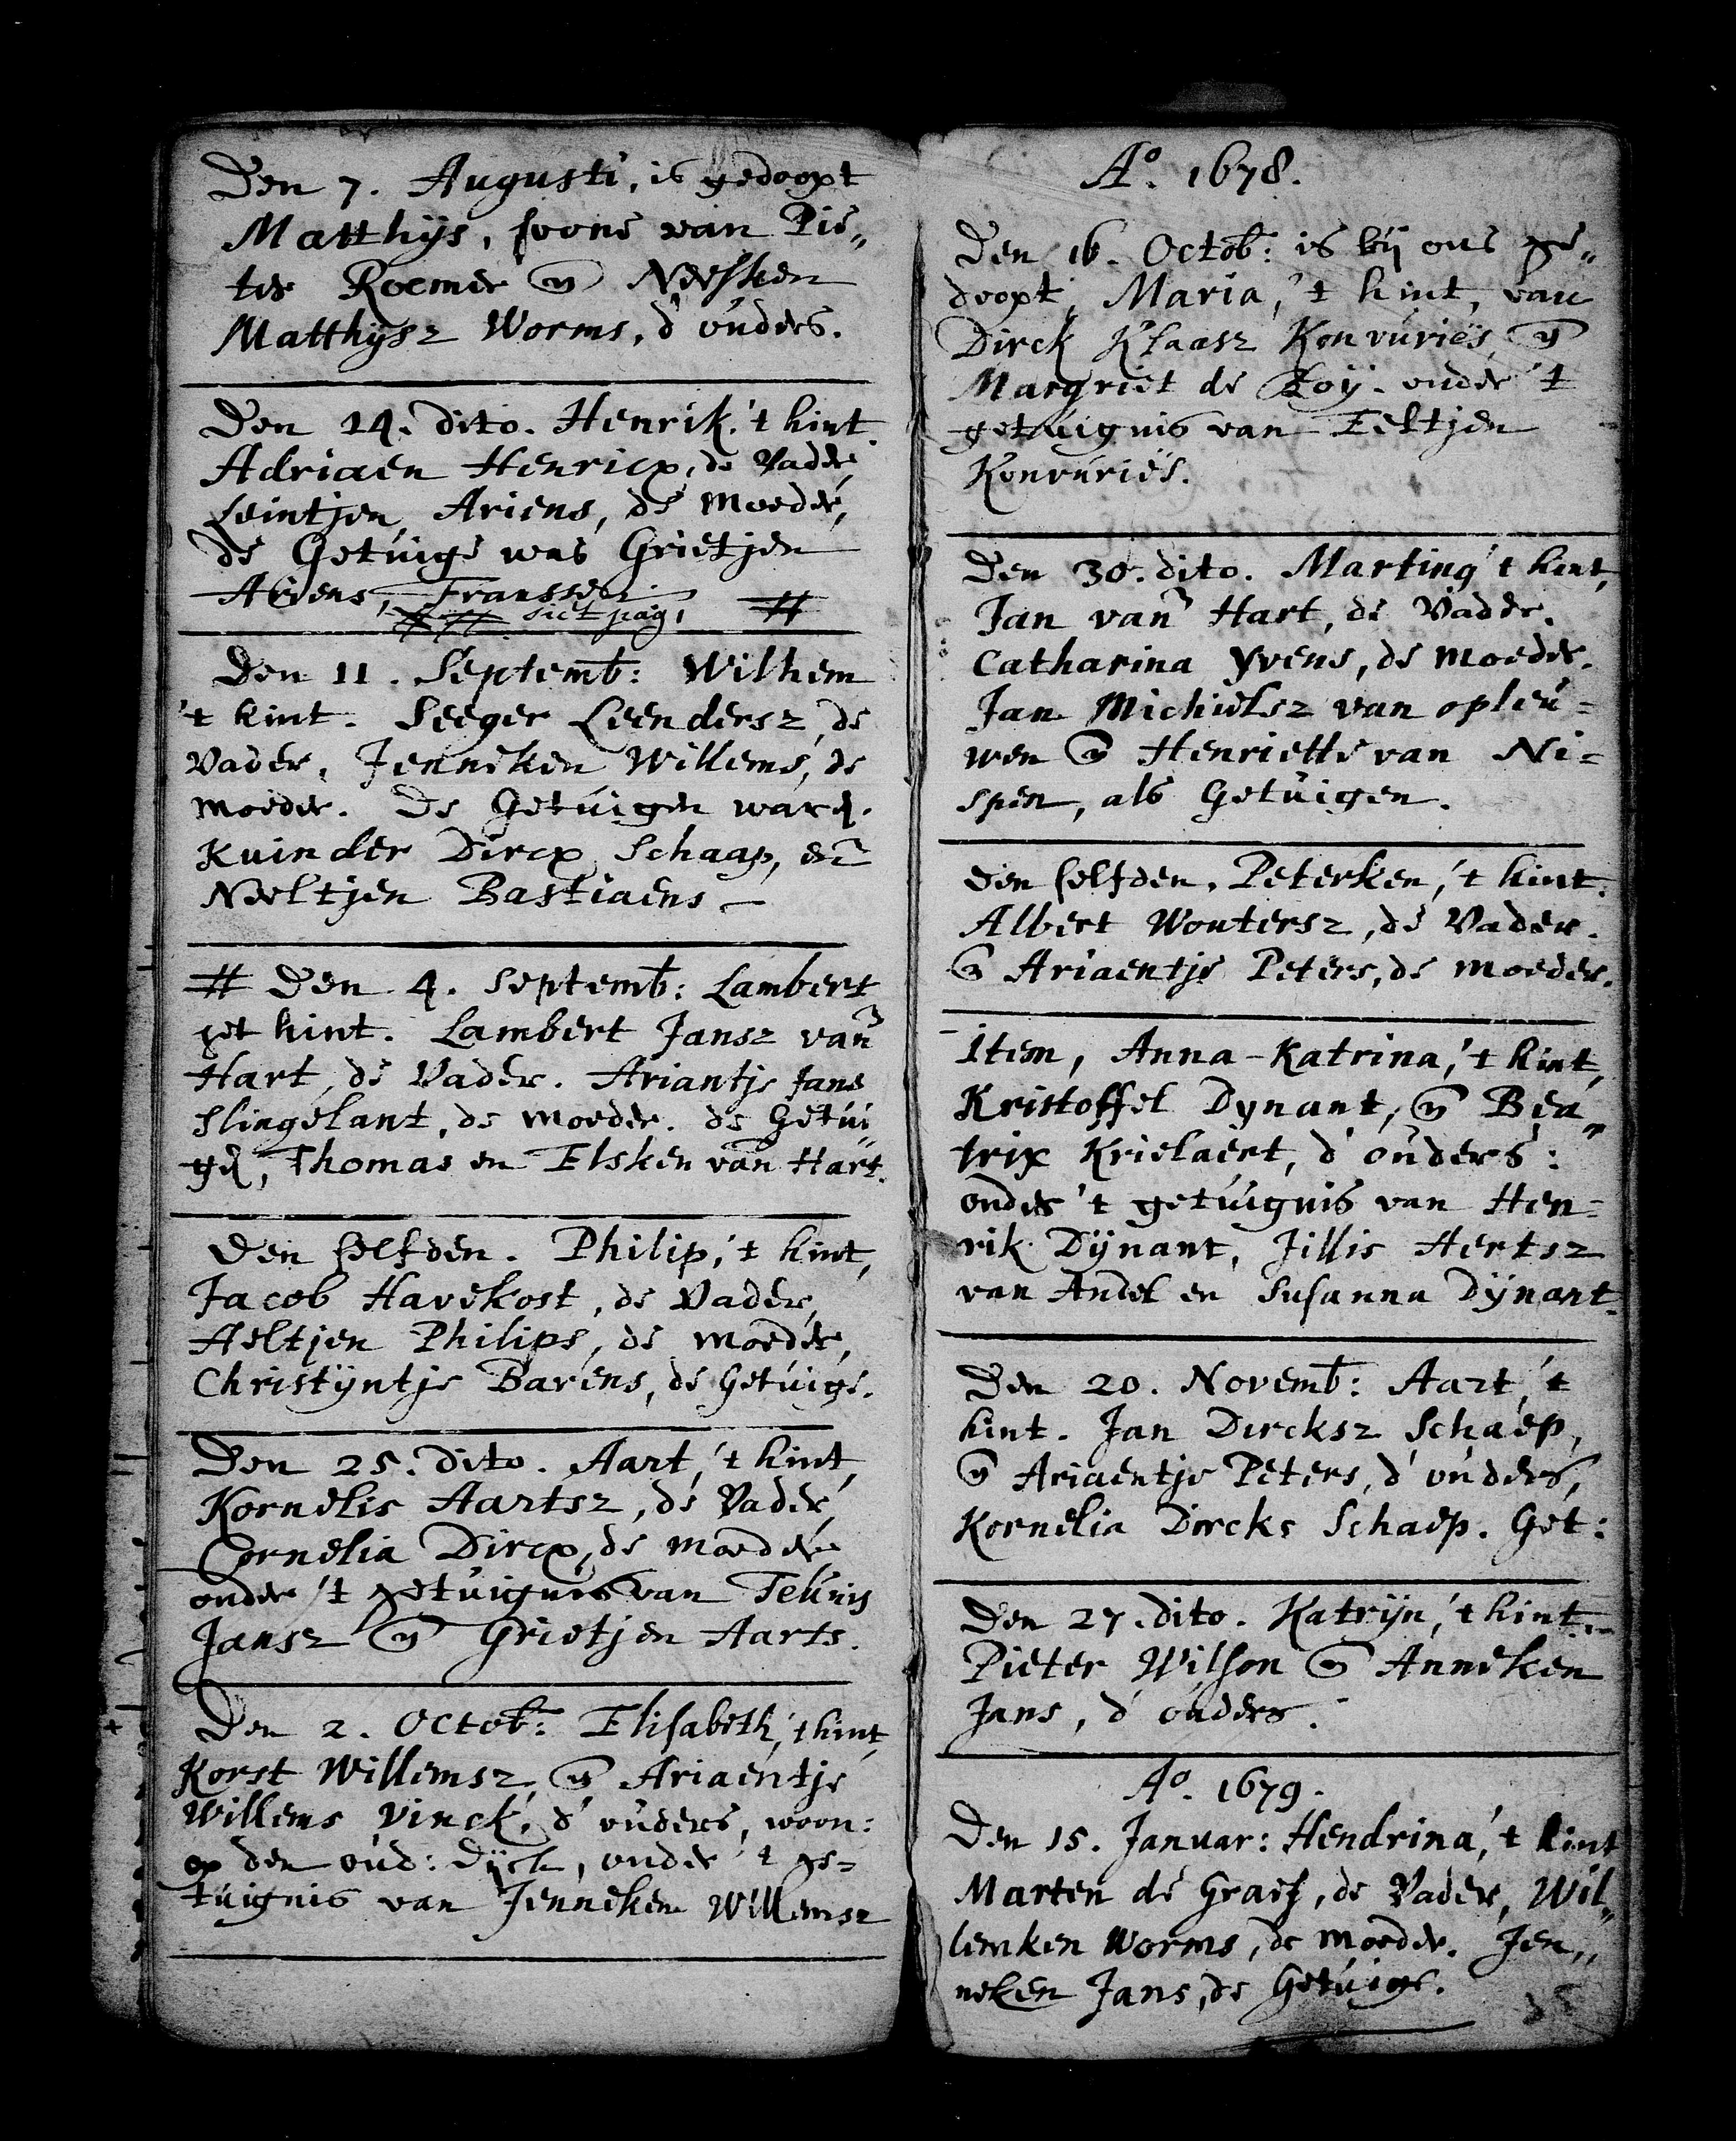 Den 7. Augusti, is gedoopt
Matthijs, soone van Pie„
ter Roemer en Neesken
Matthijsz Worms, d'ouders.
Den 14. dito. Henrik, 't kint
Adriaen Henricx, de Vader,
Leintjen Ariens, de Moeder,
de Getuige was Grietjen
Ariens, Franssen
siet pag. #
Den 11. Septemb: Wilhem
't kint. Seeger Leendersz, de
Vader, Jenneken Willems, de
moeder. De Getuigen waren
Kuinder Dircx Schaap, en
Neeltjen Bastiaens
# Den 4. Septemb: Lambert
het kint. Lambert Jansz van
Hart, de Vader. Ariantje Jans
Slingelant, de moeder. de Getui
gen, Thomas en Elsken van Hart.
Den selfden. Philip, 't kint,
Jacob Havekost, de Vader,
Aeltjen Philips, de moeder,
Christijntje Barens, de Getuige.
Den 25. dito. Aart, 't kint,
Kornelis Aartsz, de Vader,
Cornelia Dircx, de moeder,
onder 't getuignis van Teunis
Jansz en Grietjen Aarts.
Den 2. Octob: Elisabeth, 't kint,
Korst Willemsz, en Ariaentje
Willems Vinck, d'ouders, woon:
op den oud: Dijck, onder 't ge-
tuignis van Jenneken Willemsz
Ao. 1678.
Den 16. Octob: is bij ons ge„
doopt, Maria, 't kint, van
Dirck Klaasz Konvuries, en
Margriet de Roij. onder 't
getuignis van Eeltjen
Konvuries.
Den 30. dito. Martina 't kint,
Jan van Hart, de Vader.
Catharina Yvens, de moeder.
Jan Michielsz van opleu-
wen en Henriette van Ni-
spen, als Getuigen.
Den selfden. Peterken, 't kint.
Albert Woutersz, de Vader.
en Ariaentje Peters, de moeder.
Item, Anna-Katrina, 't kint,
Kristoffel Dynant, en Bea„
trix Krielaert, d'ouders:
onder 't getuignis van Hen-
rik Dijnant, Jillis Hertsz
van Andel en Susanna Dijnant.
Den 20. Novemb: Aart, 't
kint. Jan Dircksz Schaep,
en Ariaentje Peters, d'ouders,
Kornelia Dircks Schaep. Get:
Den 27. dito. Katrijn, 't kint.
Pieter Wilson en Anneken
Jans, d'ouders.
Ao. 1679.
Den 15. Januar: Hendrina, 't kint
Marten de Graef, de Vader, Wil„
lemken Worms, de moeder. Jen„
neken Jans, de Getuige.